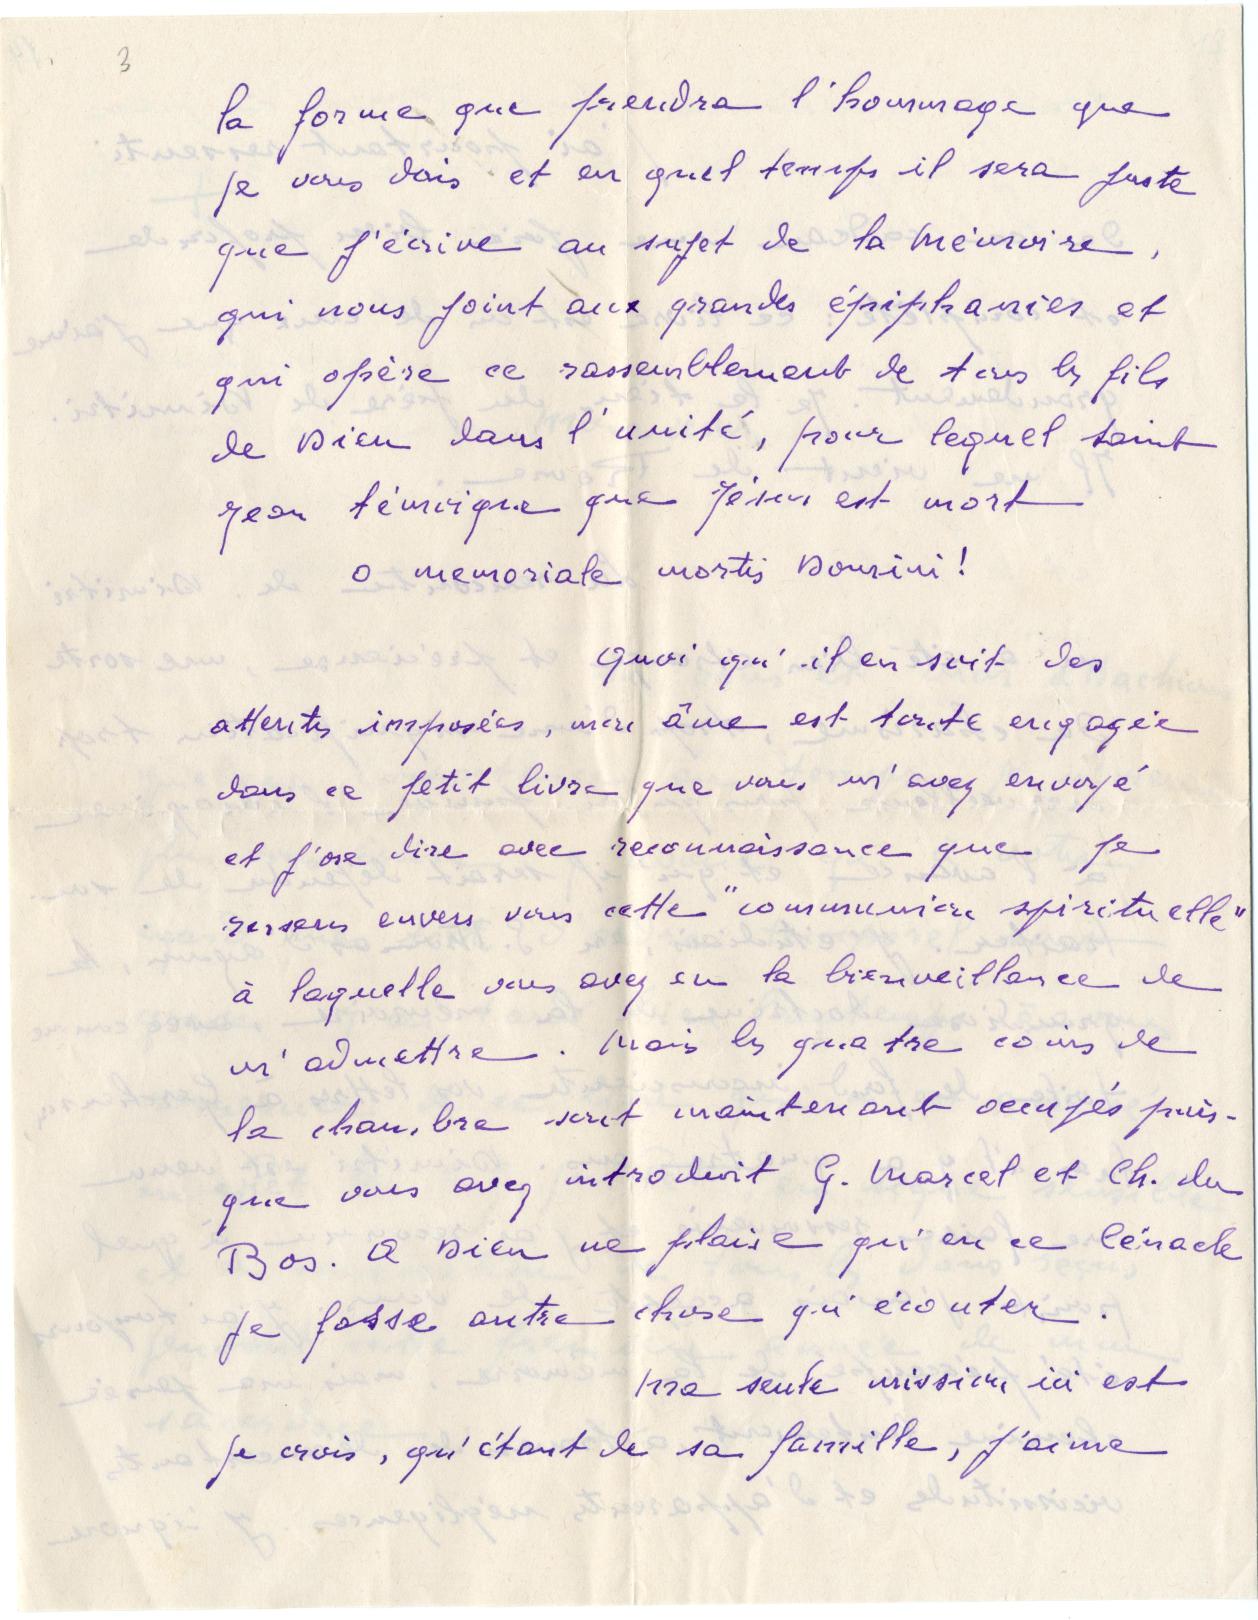 3
la forme que prendra l'hommage que
je vous dois et en quel temps il sera juste
que j'écrive au sujet de la Mémoire,
qui nous joint aux grandes épiphanies et
qui opère ce rassemblement de tous les fils
de Dieu dans l'unité, pour lequel saint
Jean témoigne que Jésus est mort
O memoriale mortis Domini!
Quoi qu'il en soit des
attentes imposées, mon âme est toute engagée
dans ce petit livre que vous m'avez envoyé
et j'ose dire avec reconnaissance que je
ressens envers vous cette "communion spirituelle"
à laquelle vous avez eu la bienveillance de
m'admettre. Mais les quatre coins de
la chambre sont maintenant occupés puis-
que vous avez introduit G. Marcel et Ch. du
Bos. A Dieu ne plaise qu'en ce Cénacle
je fasse autre chose qu'écouter.
Ma seule mission ici est
je crois, qu'étant de sa famille, j'aime